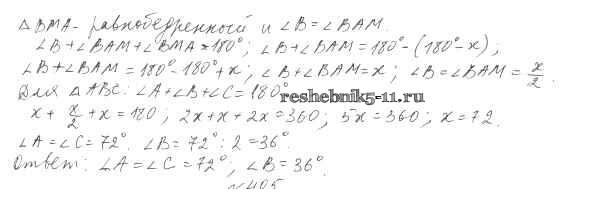 △BMA - равнобедренный и ∠B = ∠BAM.
∠B + ∠BAM + ∠BMA = 180°; ∠B + ∠BAM = 180° - (180° - x);
∠B + ∠BAM = 180° - 180° + x; ∠B + ∠BAM = x; ∠B = ∠BAM = x/2.
Для △ABC: ∠A + ∠B + ∠C = 180°
reshebnik5-11.ru
x + x/2 + x = 180; 2x + x + 2x = 360; 5x = 360; x = 72.
∠A = ∠C = 72°. ∠B = 72° : 2 = 36°.
Ответ: ∠A = ∠C = 72°, ∠B = 36°.
№405